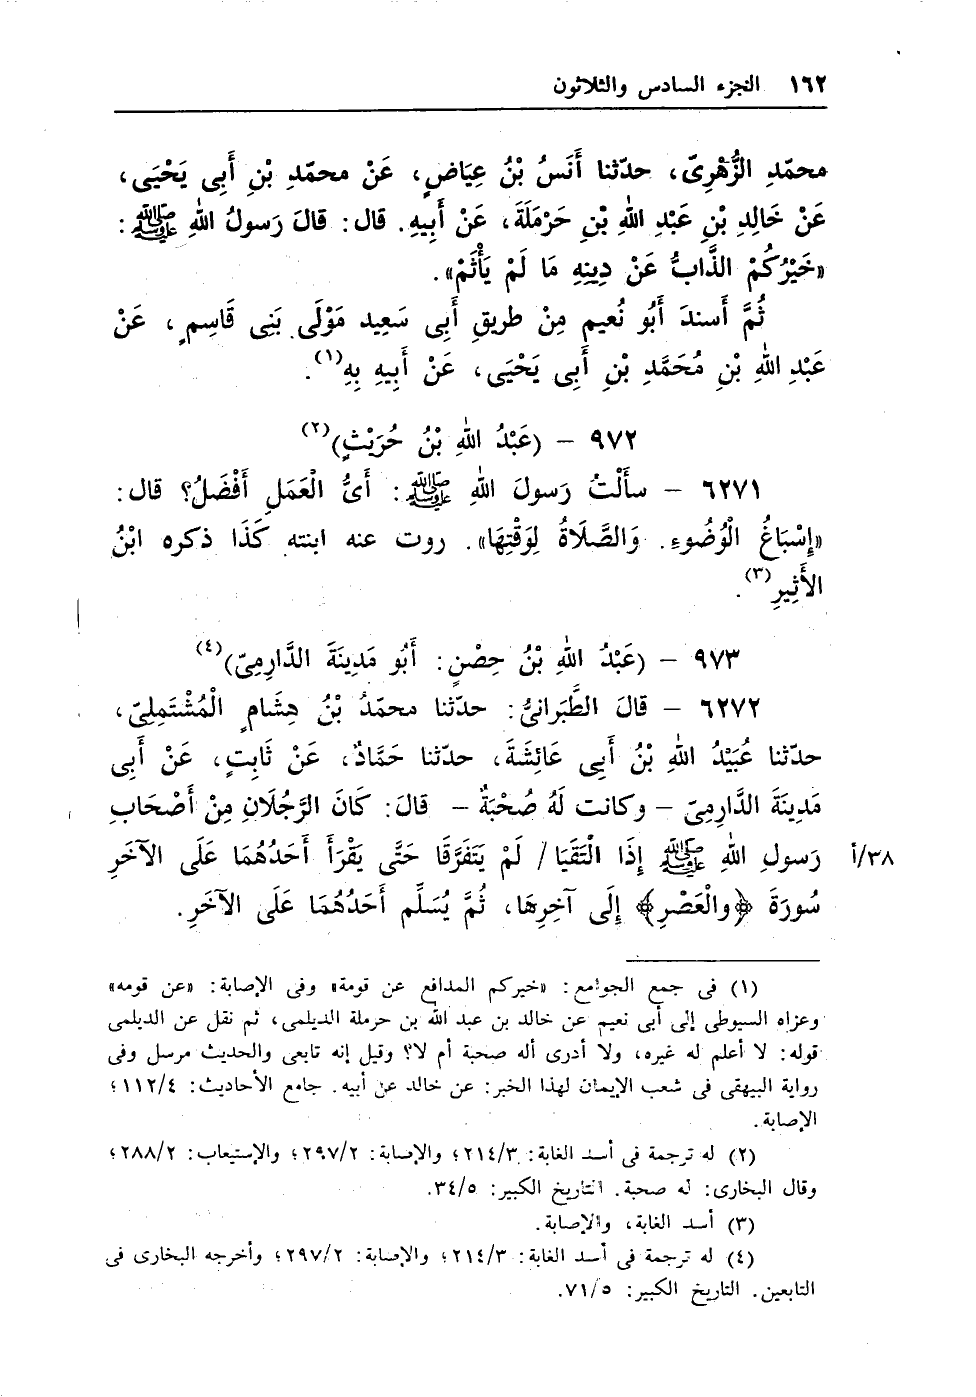 ١٦٢ الجزء السادس والثلاثون
محمّدِ الزُّهْرِىّ، حدّثنا أَنَسُ بْنُ عِيَاضٍ، عَنْ محمّدِ بْنِ أَبِى يَحْيَى،
عَنْ خَالِدِ بْنِ عَبْدِ اللهِ بْنِ حَرْمَلَةَ، عَنْ أَبِيهِ. قال: قالَ رَسولُ اللهِ ﷺ:
«خَيْرُكُمْ الذَّابُّ عَنْ دِينِهِ مَا لَمْ يَأْثَمْ».
ثُمَّ أَسندَ أَبُو نُعيمٍ مِنْ طريقِ أَبِى سَعِيد مَوْلَى بَنِى قَاسِمٍ، عَنْ
عَبْدِ اللهِ بْنِ مُحَمَّدِ بْنِ أَبِى يَحْيَى، عَنْ أَبِيهِ بِهِ(١).
٩٧٢ – (عَبْدُ اللهِ بْنُ حُرَيْثٍ)(٢)
٦٢٧١ – سأَلْتُ رَسولَ اللهِ ﷺ: أَىُّ الْعَمَلِ أَفْضَلُ؟ قال:
«إِسْبَاغُ الْوُضُوءِ. وَالصَّلَاةُ لِوَقْتِهَا». روت عنه ابنته كَذَا ذكره ابْنُ
الأَثِيرِ(٣).
٩٧٣ – (عَبْدُ اللهِ بْنُ حِصْنٍ: أَبُو مَدِينَةَ الدَّارِمِىّ)(٤)
٦٢٧٢ – قالَ الطَّبَرانىُّ: حدّثنا محمّدُ بْنُ هِشَامٍ الْمُشْتَمِلِىّ،
حدّثنا عُبَيْدُ اللهِ بْنُ أَبِى عَائِشَةَ، حدّثنا حَمَّادٌ، عَنْ ثَابِتٍ، عَنْ أَبِى
مَدِينَةَ الدَّارِمِىّ – وكانت لَهُ صُحْبَةٌ – قالَ: كَانَ الرَّجُلَانِ مِنْ أَصْحَابِ
٣٨/أ رَسولِ اللهِ ﷺ إِذَا الْتَقَيَا / لَمْ يَتَفَرَّقَا حَتَّى يَقْرَأَ أَحَدُهُمَا عَلَى الآخَرِ
سُورَةَ ﴿والْعَصْرِ﴾ إِلَى آخِرِهَا، ثُمَّ يُسَلِّم أَحَدُهُمَا عَلَى الآخَرِ.
(١) فى جمع الجوامع: «خيركم المدافع عن قومة» وفى الإصابة: «عن قومه»
وعزاه السيوطى إلى أبى نعيم عن خالد بن عبد الله بن حرملة الديلمى، ثم نقل عن الديلمى
قوله: لا أعلم له غيره، ولا أدرى أله صحبة أم لا؟ وقيل إنه تابعى والحديث مرسل وفى
رواية البيهقى فى شعب الإيمان لهذا الخبر: عن خالد عن أبيه. جامع الأحاديث: ١١٢/٤؛
الإصابة.
(٢) له ترجمة فى أسد الغابة: ٢١٤/٣؛ والإصابة: ٢٩٧/٢؛ والإستيعاب: ٢٨٨/٢؛
وقال البخارى: له صحبة. التاريخ الكبير: ٣٤/٥.
(٣) أسد الغابة، والإصابة.
(٤) له ترجمة فى أسد الغابة: ٢١٤/٣؛ والإصابة: ٢٩٧/٢؛ وأخرجه البخارى فى
التابعين. التاريخ الكبير: ٧١/٥.